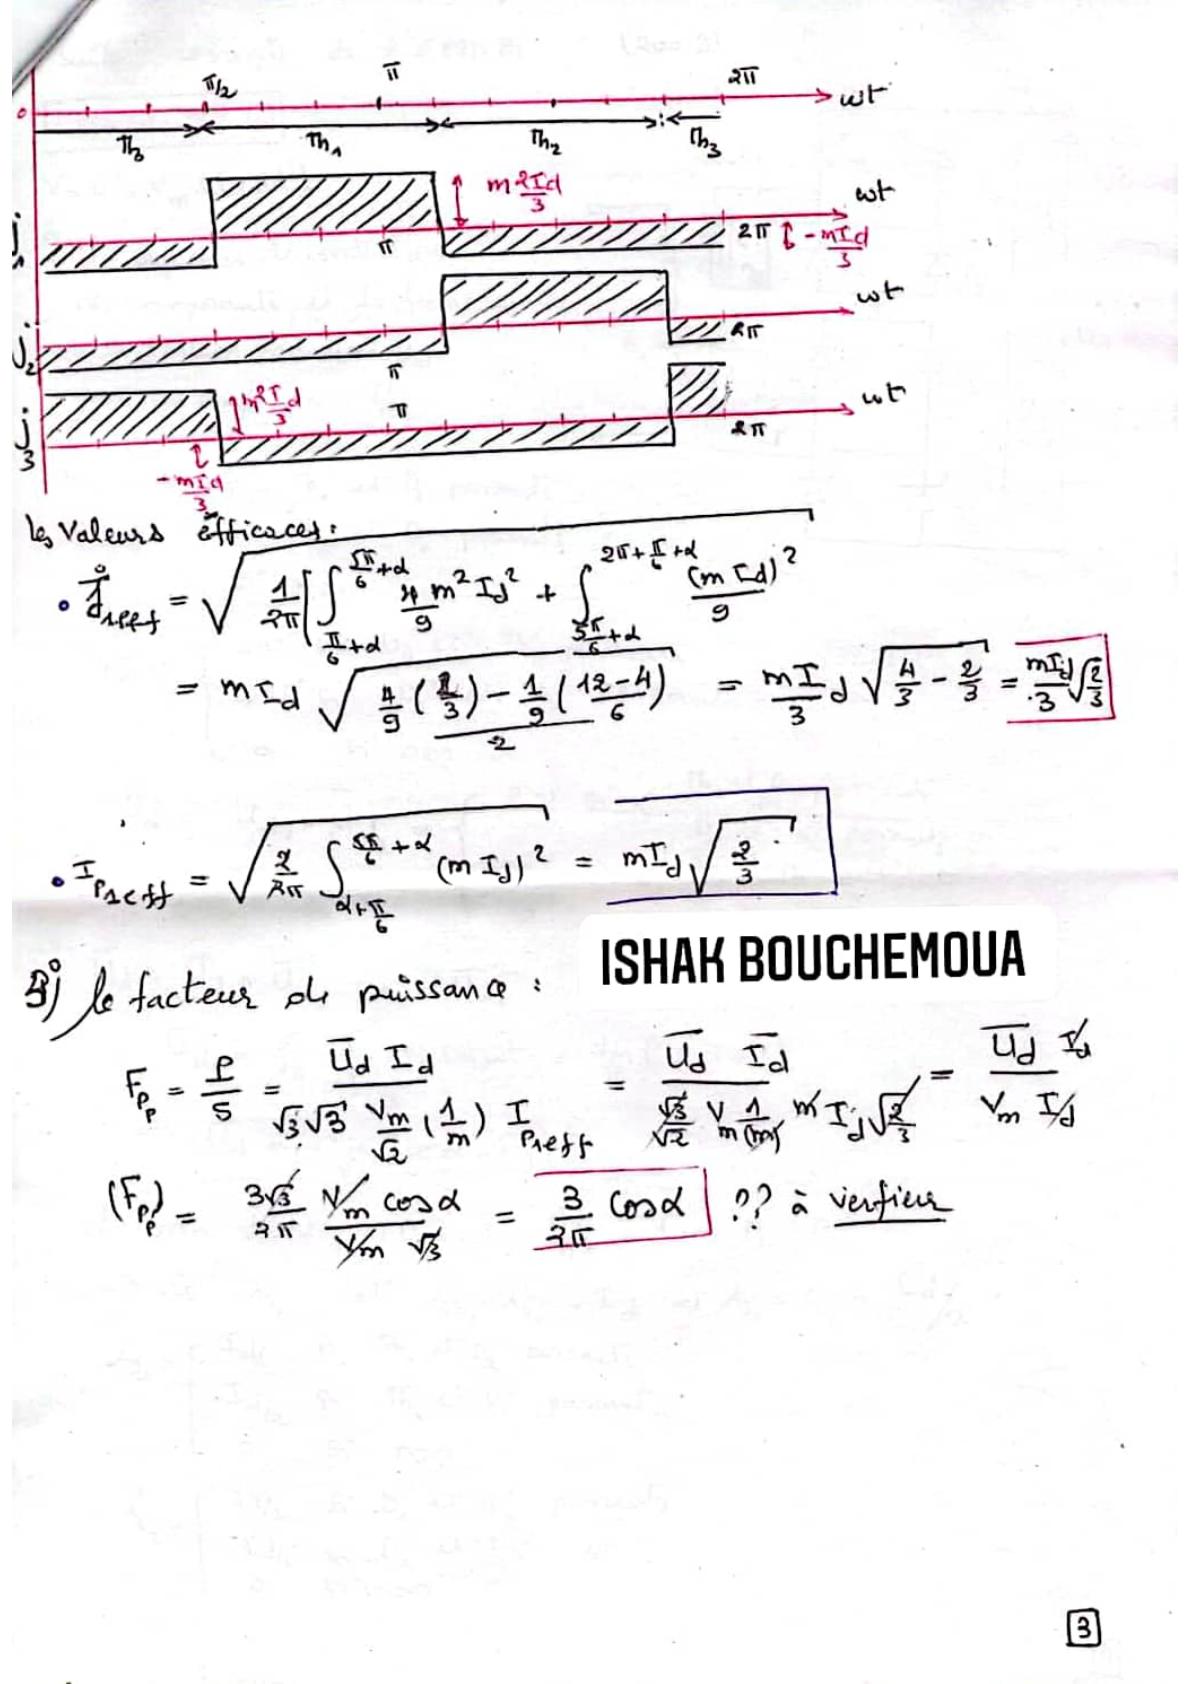 0 π/2 π 2π ωt
Th3 Th1 Th2 Th3
j1 m 2Id/3 π 2π -mId/3 ωt
j2 π 2π ωt
j3 m 2Id/3 π 2π ωt
-mId/3
les valeurs éfficaces :
• j1eff = √(1/2π [∫_{π/6+α}^{5π/6+α} 4/9 m² Id² + ∫_{5π/6+α}^{2π+π/6+α} (m Id)²/9
= m Id √((4/9 (2/3) - 1/9 ((12-4)/6))/2) = mI/3 d √(4/3 - 2/3) = mId/3 √(2/3)
• IP1eff = √(2/2π ∫_{α+π/6}^{5π/6+α} (m Id)²) = mId √(2/3)
ISHAK BOUCHEMOUA
3°) le facteur de puissance :
Fpp = P/S = Ud Id / (√3 √3 Vm/√2 (1/m) IP1eff) = Ud Id / (√3/√2 Vm 1/(m) m Id √(2/3)) = Ud Id / (Vm Id)
(Fpp) = 3√3/2π Vm cosα / (Vm √3) = 3/2π cosα ?? à verfieur
3